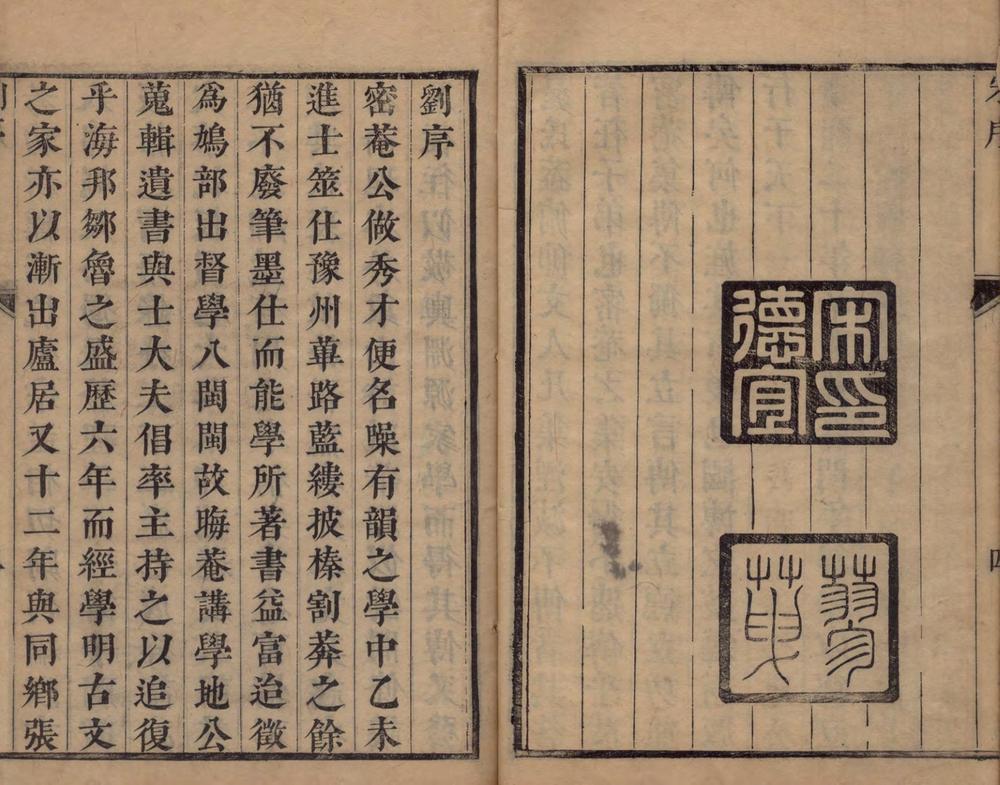 宋印
德宜
劉序
密菴公做秀才便名噪有韻之學中乙未
進士筮仕豫州蓽路藍縷披榛割莽之餘
猶不廢筆墨仕而能學所著書益富迨徵
爲鳩部出督學八閩閩故晦菴講學地公
蒐輯遺書與士大夫倡率主持之以追復
乎海邦鄒魯之盛歷六年而經學明古文
之家亦以漸出廬居又十二年與同鄉張